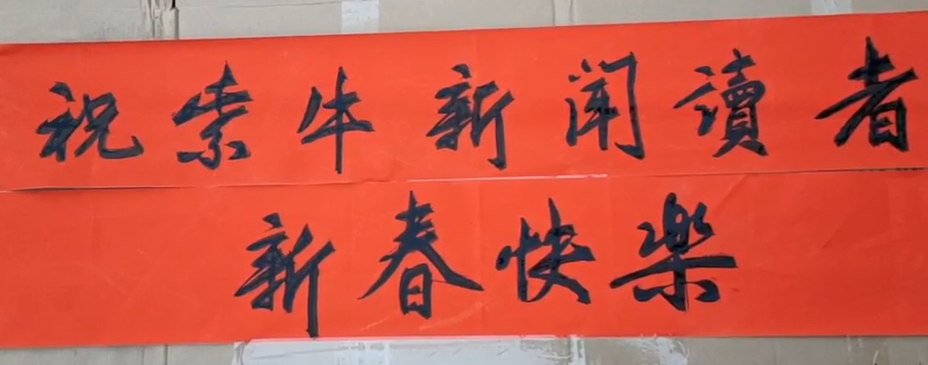 祝索牛新闻讀者
新春快樂